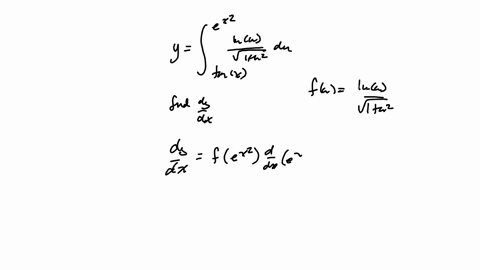 y = ∫_{tan(x)}^{e^{x^2}} ln(u)/√(1+u^2) du
find dy/dx
f(u) = ln(u)/√(1+u^2)
dy/dx = f(e^{x^2}) d/dx (e^x